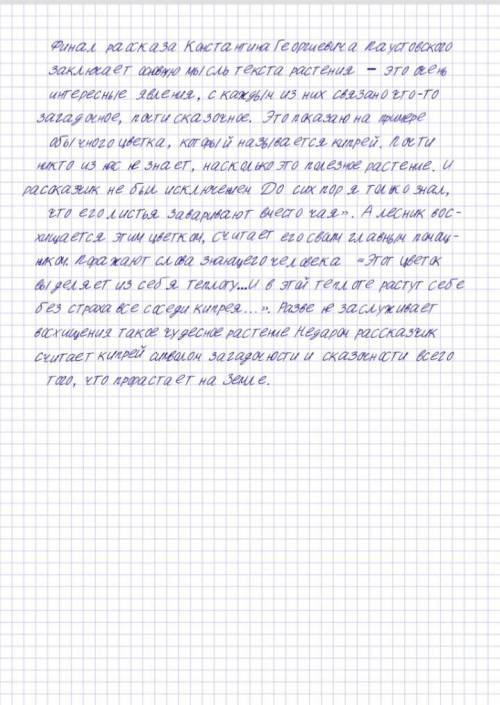 Финал рассказа Константина Георгиевича Паустовского
заключает основную мысль текста растения – это очень
интересные явления, с каждым из них связано что-то
загадочное, почти сказочное. Это показано на примере
обычного цветка, который называется кипрей. Почти
никто из нас не знает, насколько это полезное растение. И
рассказчик не был исключением До сих пор я только знал,
что его листья заваривают вместо чая». А лесник вос-
хищается этим цветком, считает его своим главным помощ-
ником. Поражают слова знающего человека «Этот цветок
выделяет из себя теплоту...И в этой теплоте растут себе
без страха все соседи кипрея...». Разве не заслуживает
восхищения такое чудесное растение Недаром рассказчик
считает кипрей символом загадочности и сказочности всего
того, что прорастает на Земле.